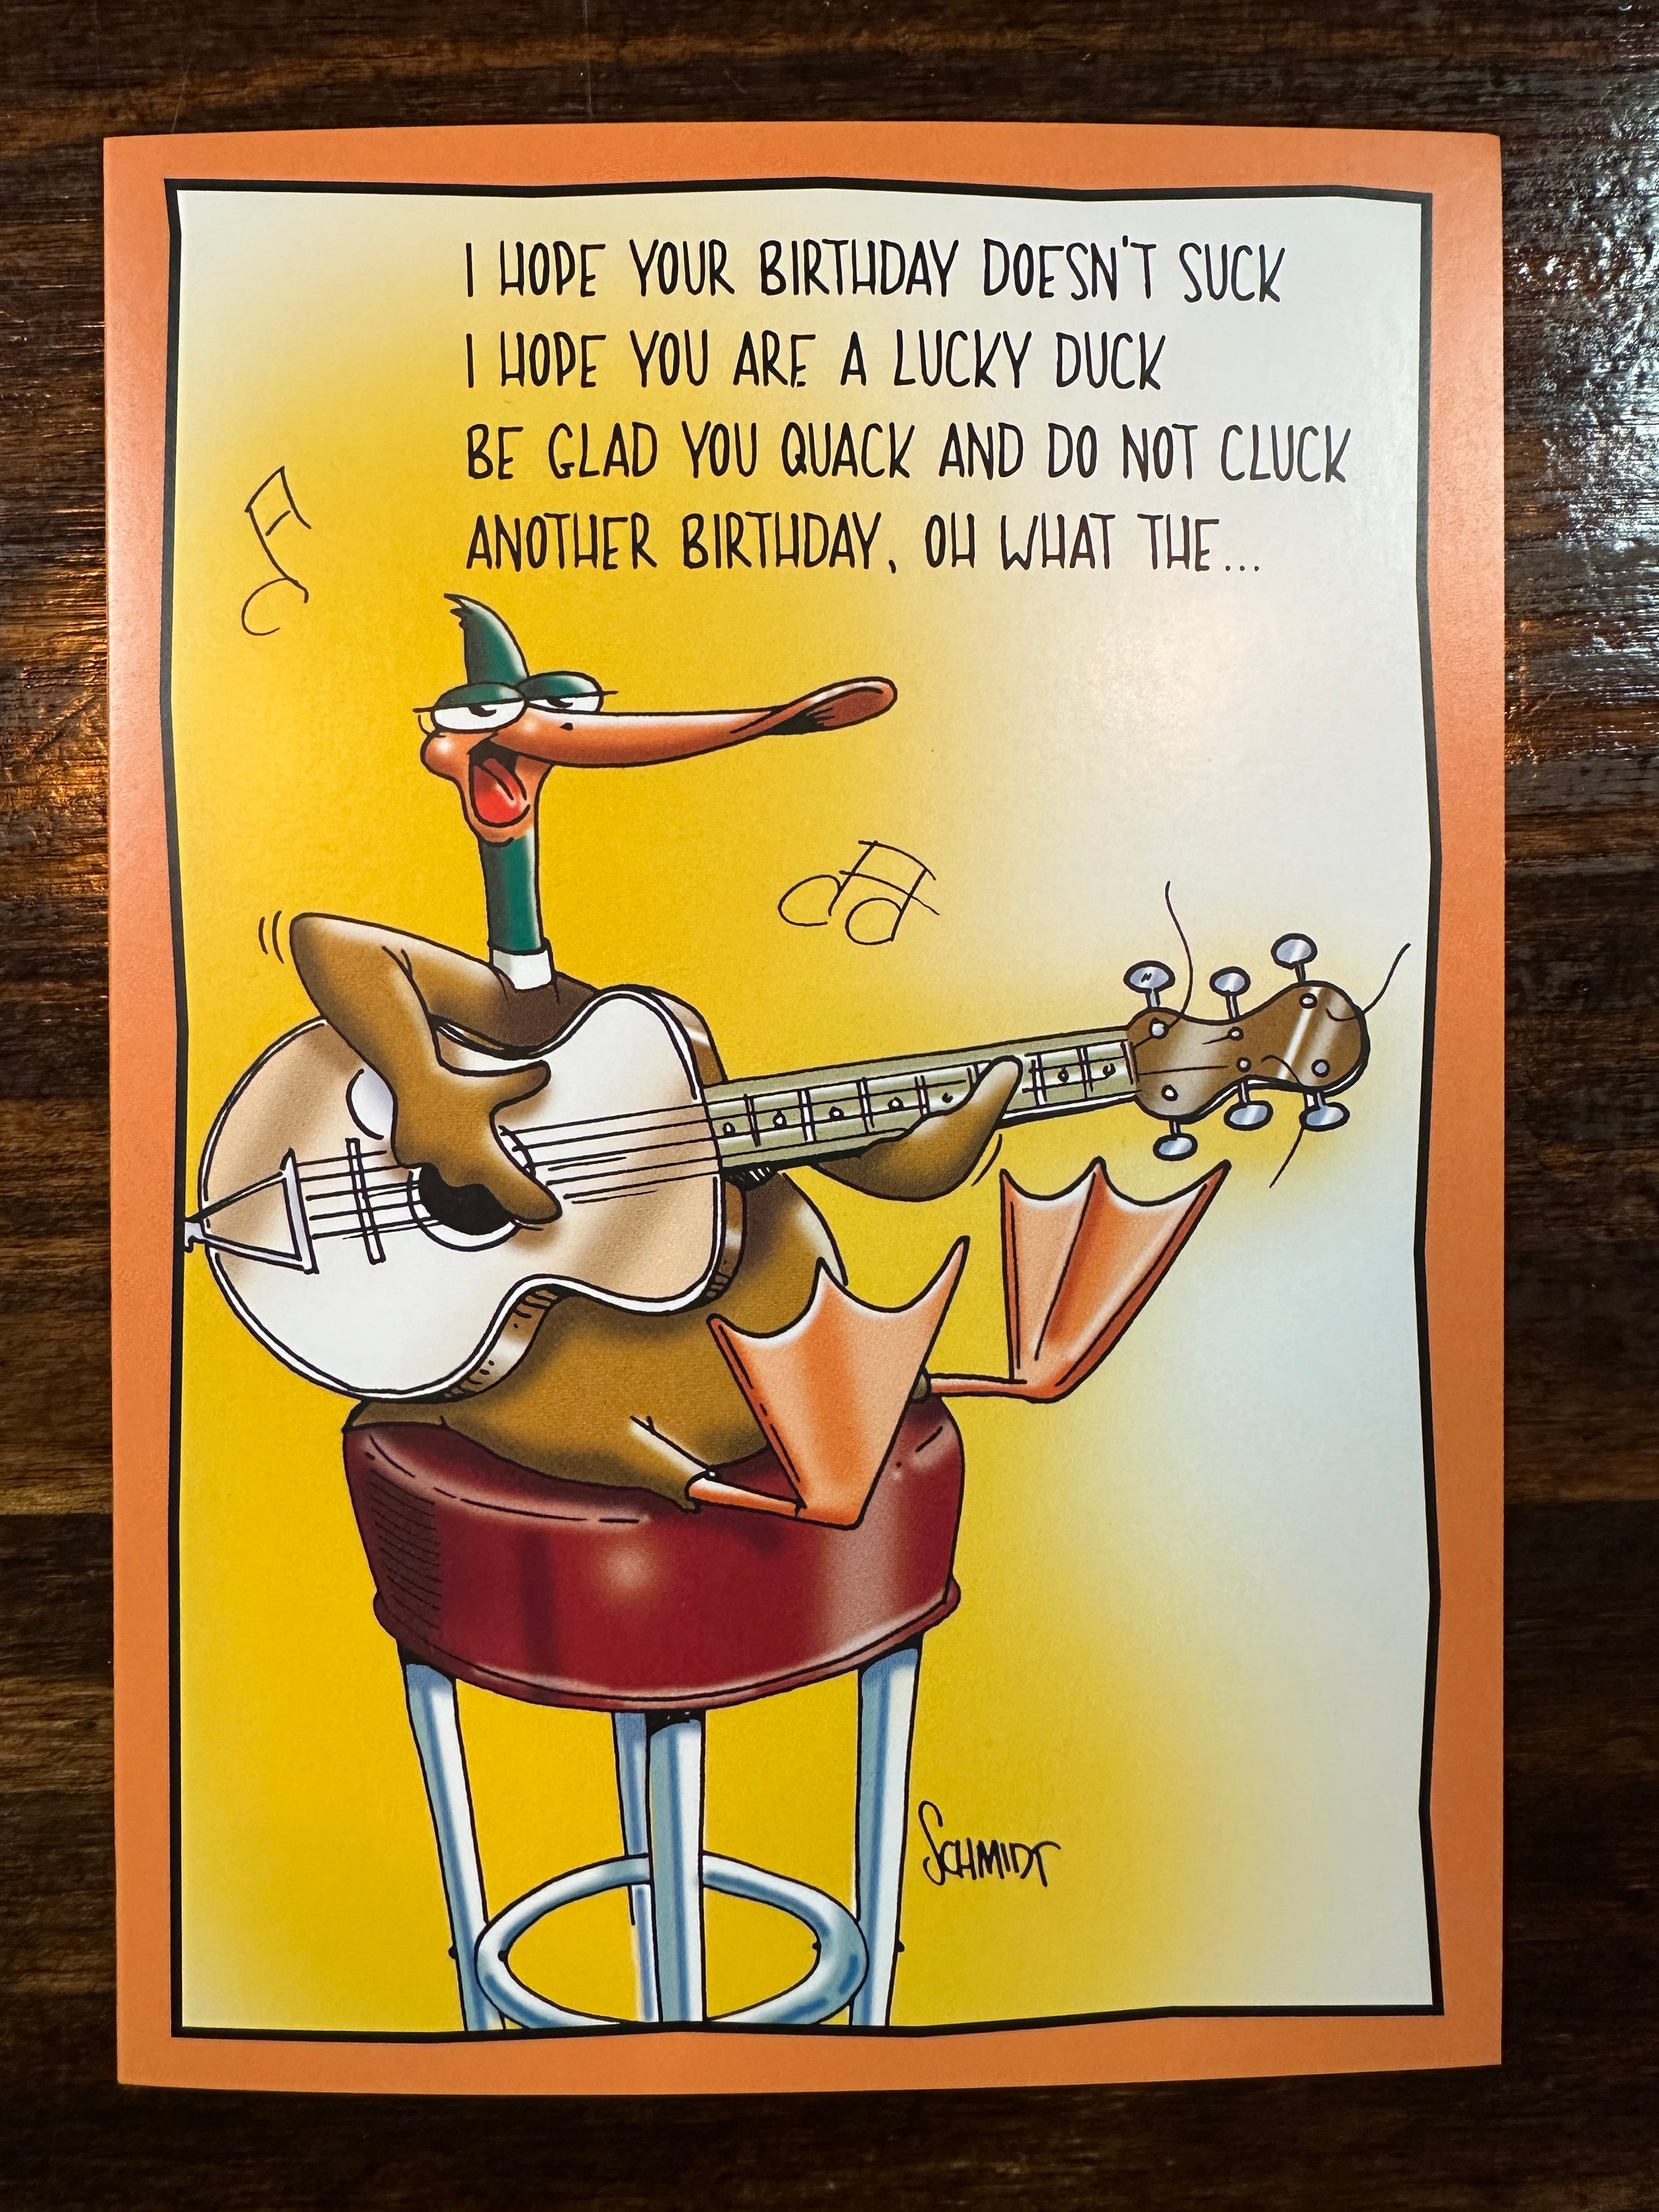 I HOPE YOUR BIRTHDAY DOESN'T SUCK
I HOPE YOU ARE A LUCKY DUCK
BE GLAD YOU QUACK AND DO NOT CLUCK
ANOTHER BIRTHDAY, OH WHAT THE...
SCHMIDT